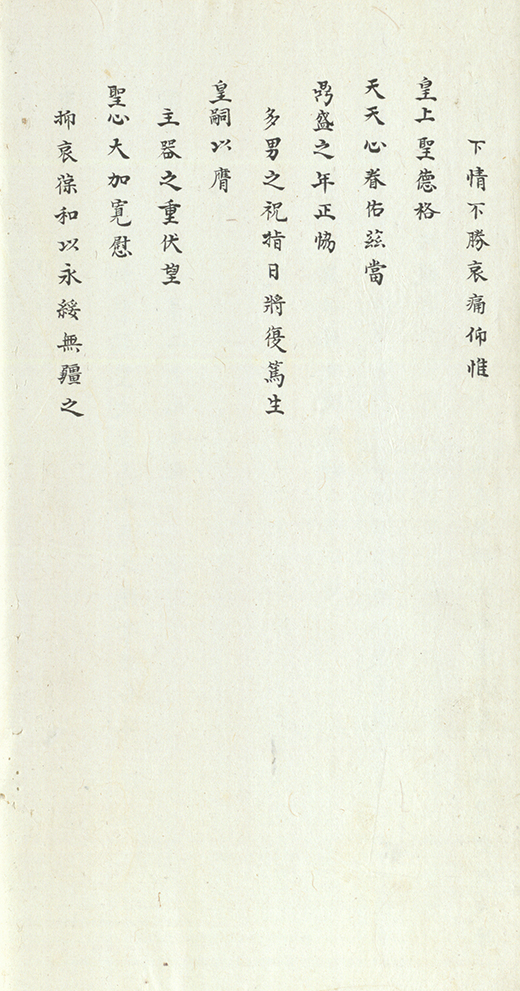 下情不勝哀痛仰惟
皇上聖德格
天天心眷佑茲當
鼎盛之年正協
多男之祝指日將復篤生
皇嗣以膺
主器之重伏望
聖心大加寬慰
抑哀葆和以永綏無疆之